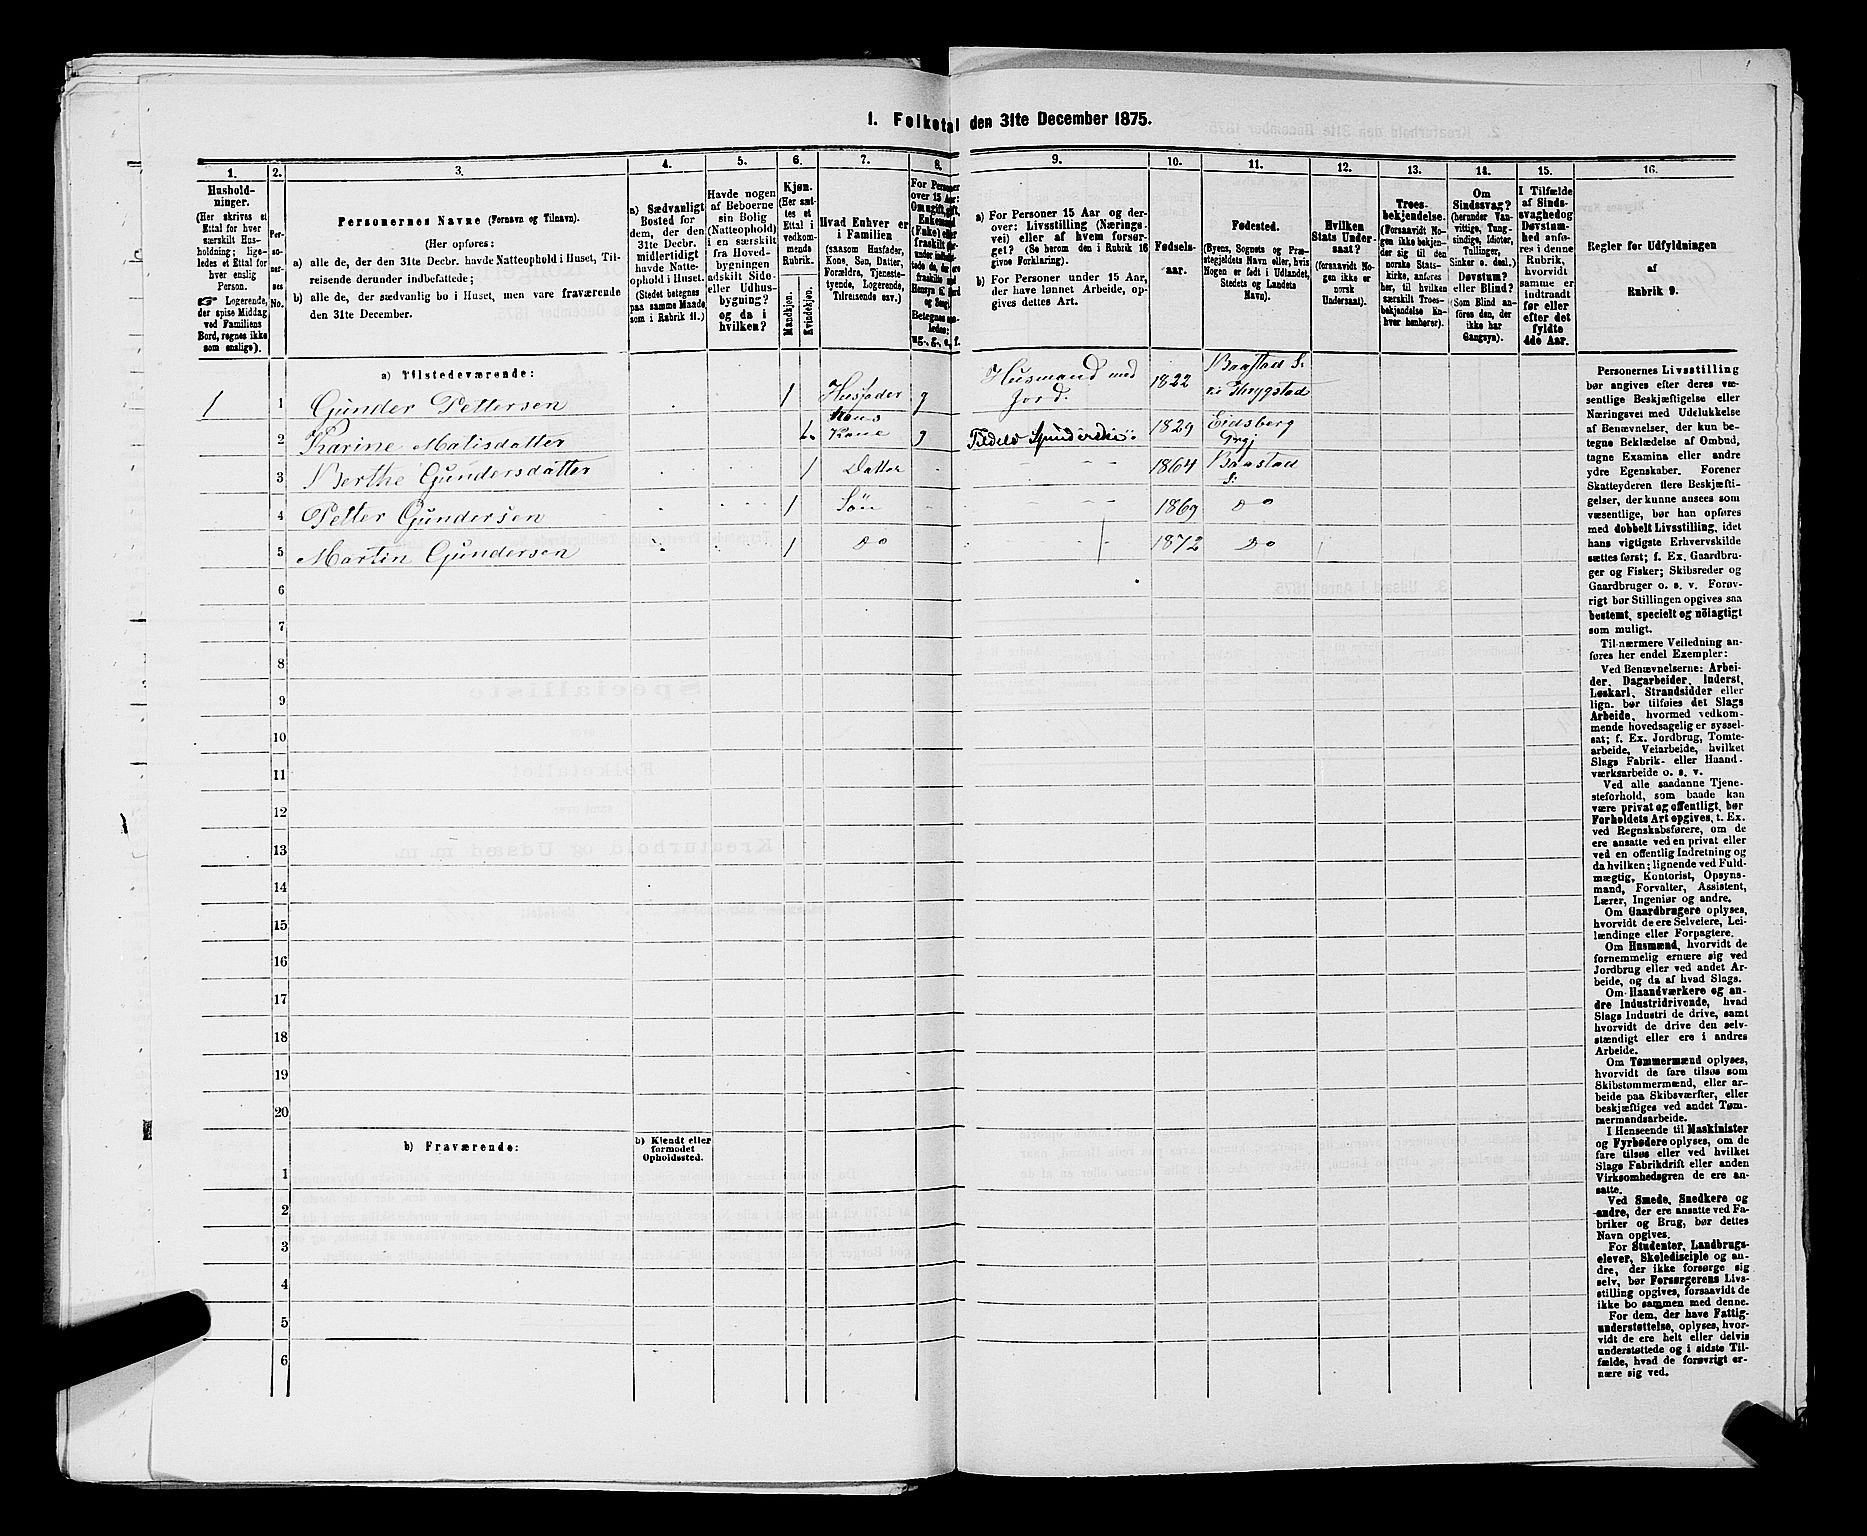 1. Folketal den 31te December 1875.
1.
2.
3.
4.
5.
6.
7.
8.
9.
10.
11.
12.
13.
14.
15.
16.
Hushold-
ninger.
(Her skrives et
Ettal for hver
særskilt Hus-
holdning; lige-
ledes et Ettal for
hver enslig
Person.
☞ Logerende,
der spise Middag
ved Familiens
Bord, regnes ikke
som enslige).
Per-
so-
ner-
nes
No.
Personernes Navne (Fornavn og Tilnavn).
(Her opføres:
a) alle de, der den 31te Decbr. havde Natteophold i Huset, Til-
reisende derunder indbefattede;
b) alle de, der sædvanlig bo i Huset, men vare fraværende
den 31te December.
a) Sædvanligt
Bosted for
dem, der den
31te Decbr.
midlertidigt
havde Natte-
ophold i Huset.
(Stedet betegnes
paa samme Maade
som i Rubrik 11.)
Havde nogen
af Beboerne
sin Bolig
(Natteophold)
i en særskilt
fra Hoved-
bygningen
adskilt Side-
eller Udhus-
bygning?
og da i
hvilken?
Kjøn.
(Her sæt-
tes et
Ettal i
vedkom-
mende
Rubrik.
Mandkjøn.
Kvindekjøn.
Hvad Enhver er
i Familien
(saasom Husfader,
Kone, Søn, Datter,
Forældre, Tjeneste-
tyende, Logerende,
Tilreisende osv.)
For Personer
over 15 Aar:
a) For Personer 15 Aar og der-
over: Livsstilling (Nærings-
vei) eller af hvem forsør-
get? (Se herom den i Rubrik 16
givne Forklaring).
b) For Personer under 15 Aar,
der have lønnet Arbeide, op-
gives dettes Art.
Fødsels-
aar.
Fødested.
(Byens, Sognets og Præ-
stegjeldets Navn eller, hvis
Nogen er født i Udlandet,
Stedets og Landets
Navn).
Hvilken
Stats Under-
saat?
(forsaavidt No-
gen ikke er
norsk
Undersaat).
Troes-
bekjendelse.
(Forsaavidt No-
gen ikke bekjen-
der sig til den
norske Stats-
kirke, anføres
her, til hvilken
særskilt Troes-
bekjendelse En-
hver henhører).
Om
Sindssvag?
(herunder Van-
vittige, Tung-
sindige, Idioter,
Tullinger,
Sinker o. desl.)
Døvstum?
eller Blind?
(Som Blind an-
føres den, der
ikke har
Gangsyn).
I Tilfælde
af Sinds-
svaghed og
Døvstum-
hed anfø-
res i denne
Rubrik,
hvorvidt
samme er
indtraadt
før eller
efter det
fyldte
4de Aar.
Regler for Udfyldningen
af
Rubrik 9.
a) Tilstedeværende:
1 1 Gunder Pettersen 1 Husfader g Husmand med Jord. 1822 Baastad S.
2 Karine Matisdatter 1. Kone g 1829 Eidsberg Prgj
3 Berthe Gundersdatter 1 Datter 1864 Baastad S.
4 Petter Gundersen 1 Søn 1869 Do
5 Martin Gundersen 1 Do 1872 Do
6
7
8
9
10
11
12
13
14
15
16
17
18
19
20
b) Fraværende:
b) Kjendt eller
formodet
Opholdssted.
1
2
3
4
5
6
Personernes Livsstilling
bør angives efter deres væ-
sentlige Beskjæftigelse eller
Næringsvei med Udelukkelse
af Benævnelser, der kun be-
tegne Beklædelse af Ombud,
tagne Examina eller andre
ydre Egenskaber. Forener
Skatteyderen flere Beskjæfti-
gelser, der kunne ansees som
væsentlige, bør han opføres
med dobbelt Livsstilling, idet
hans vigtigste Erhvervskilde
sættes først; f. Ex. Gaardbru-
ger og Fisker; Skibsreder og
Gaardbruger o. s. v. Forøv-
rigt bør Stillingen opgives saa
bestemt, specielt og nöiagtigt
som muligt.
Til nærmere Veiledning an-
føres her endel Exempler:
Ved Benævnelserne: Arbei-
der, Dagarbeider, Inderst,
Løskarl, Strandsidder eller
lign. bør tilføies det Slags
Arbeide, hvormed vedkom-
mende hovedsagelig er syssel-
sat; f. Ex. Jordbrug, Tomte-
arbeide, Veiarbeide, hvilket
Slags Fabrik- eller Haand-
værksarbeide o. s. v.
Ved alle saadanne Tjene-
steforhold, som baade kan
være privat og offentligt, bør
Forholdets Art opgives, t. Ex.
ved Regnskabsførere, om de
ere ansatte ved en privat eller
ved en offentlig Indretning og
da hvilken; lignende ved Fuld-
mægtig, Kontorist, Opsyns-
mand, Forvalter, Assistent,
Lærer, Ingeniør og andre.
Om Gaardbrugere oplyses,
hvorvidt de ere Selveiere, Lei-
lændinge eller Forpagtere.
Om Husmænd, hvorvidt de
fornemmelig ernære sig ved
Jordbrug eller ved andet Ar-
beide, og da af hvad Slags.
Om Haandværkere og an-
dre Industridrivende, hvad
Slags Industri de drive, samt
hvorvidt de drive den selv-
stændigt eller ere i andres
Arbeide.
Om Tømmermænd oplyses,
hvorvidt de fare tilsøs som
Skibstømmermænd, eller ar-
beide paa Skibsværfter, eller
beskjæftiges ved andet Tøm-
mermandsarbeide.
I Henseende til Maskinister
og Fyrbødere oplyses, om de
fare tilsøs eller ved hvilket
Slags Fabrikdrift eller anden
Virksomhedsgren de ere an-
satte.
Ved Smede, Snedkere og
andre, der ere ansatte ved Fa-
briker og Brug, bør dettes
Navn opgives.
For Studenter, Landbrugs-
elever, Skoledisciple og an-
dre, der ikke forsørge sig
selv, bør Forsørgerens Livs-
stilling opgives, forsaavidt de
ikke bo sammen med denne.
For dem, der have Fattig-
understøttelse, oplyses, hvor-
vidt de ere helt eller delvis
understøttede og i sidste Til-
fælde, hvad de forøvrigt er-
nære sig ved.